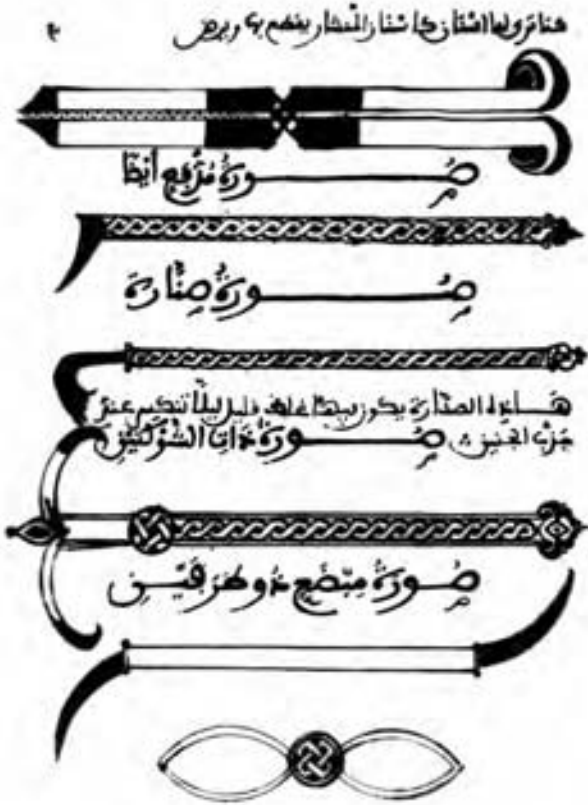 هنا ترى لها اسنان كاسنان المنشار يقطع بها ويرض
صورة مدفع أيضا
صورة صنارة
هذه الصنارة يكون فيها غلظ قليل ليلا تنكسر عند
جذب الجنين صورة ذات الشوكتين
صورة مبضع ذو طرفين